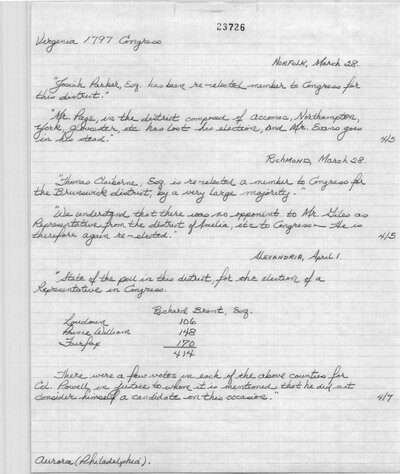 23726
Virginia 1797 Congress
Norfolk, March 28.
"Josiah Parker, Esq. has been re-elected member to Congress for
this district."
"Mr. Page, in the district composed of Accomac, Northampton,
York, Glouester, etc. has lost his election, and Mr. Evans goes
in his stead."
4/5
Richmond, March 28.
"Thomas Claiborne, Esq. is re-elected a member to Congress for
the Brunswick district, by a very large majority."
"We understand that there was no opponent to Mr. Giles as
Representative from the district of Amelia, etc to Congress - He is
therefore again re-elected."
4/5
Alexandria, April 1.
"State of the poll in this district, for the election of a
Representative in Congress.
Richard Brent, Esq.
Loudoun 106
Prince William 148
Fairfax 170
414
There were a few votes in each of the above counties for
Col. Powell, in justice to whom it is mentioned that he did not
consider himself a candidate on this occasion."
4/7
Aurora (Philadelphia).